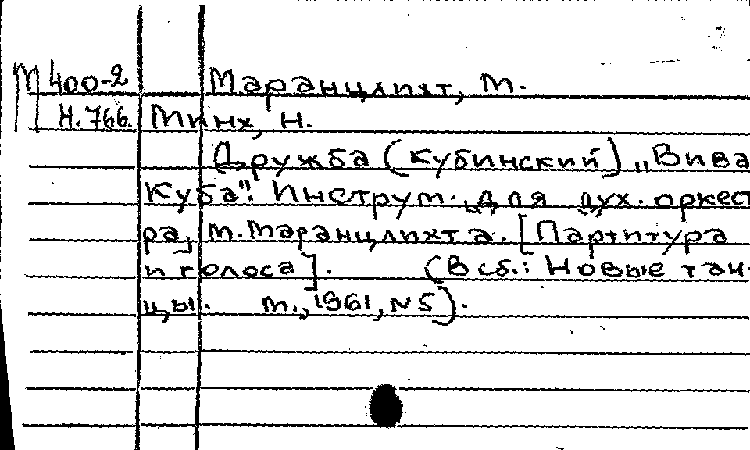 М 400-2 Маранцлихт, М.
Н.766. Минх, Н.
Дружба (Кубинский) „Вива
Куба". Инструм. для дух. оркест
ра, М. Маранцлихта. [Партитура
и голоса]. (В сб.: Новые тан-
цы. М., 1961, №5).